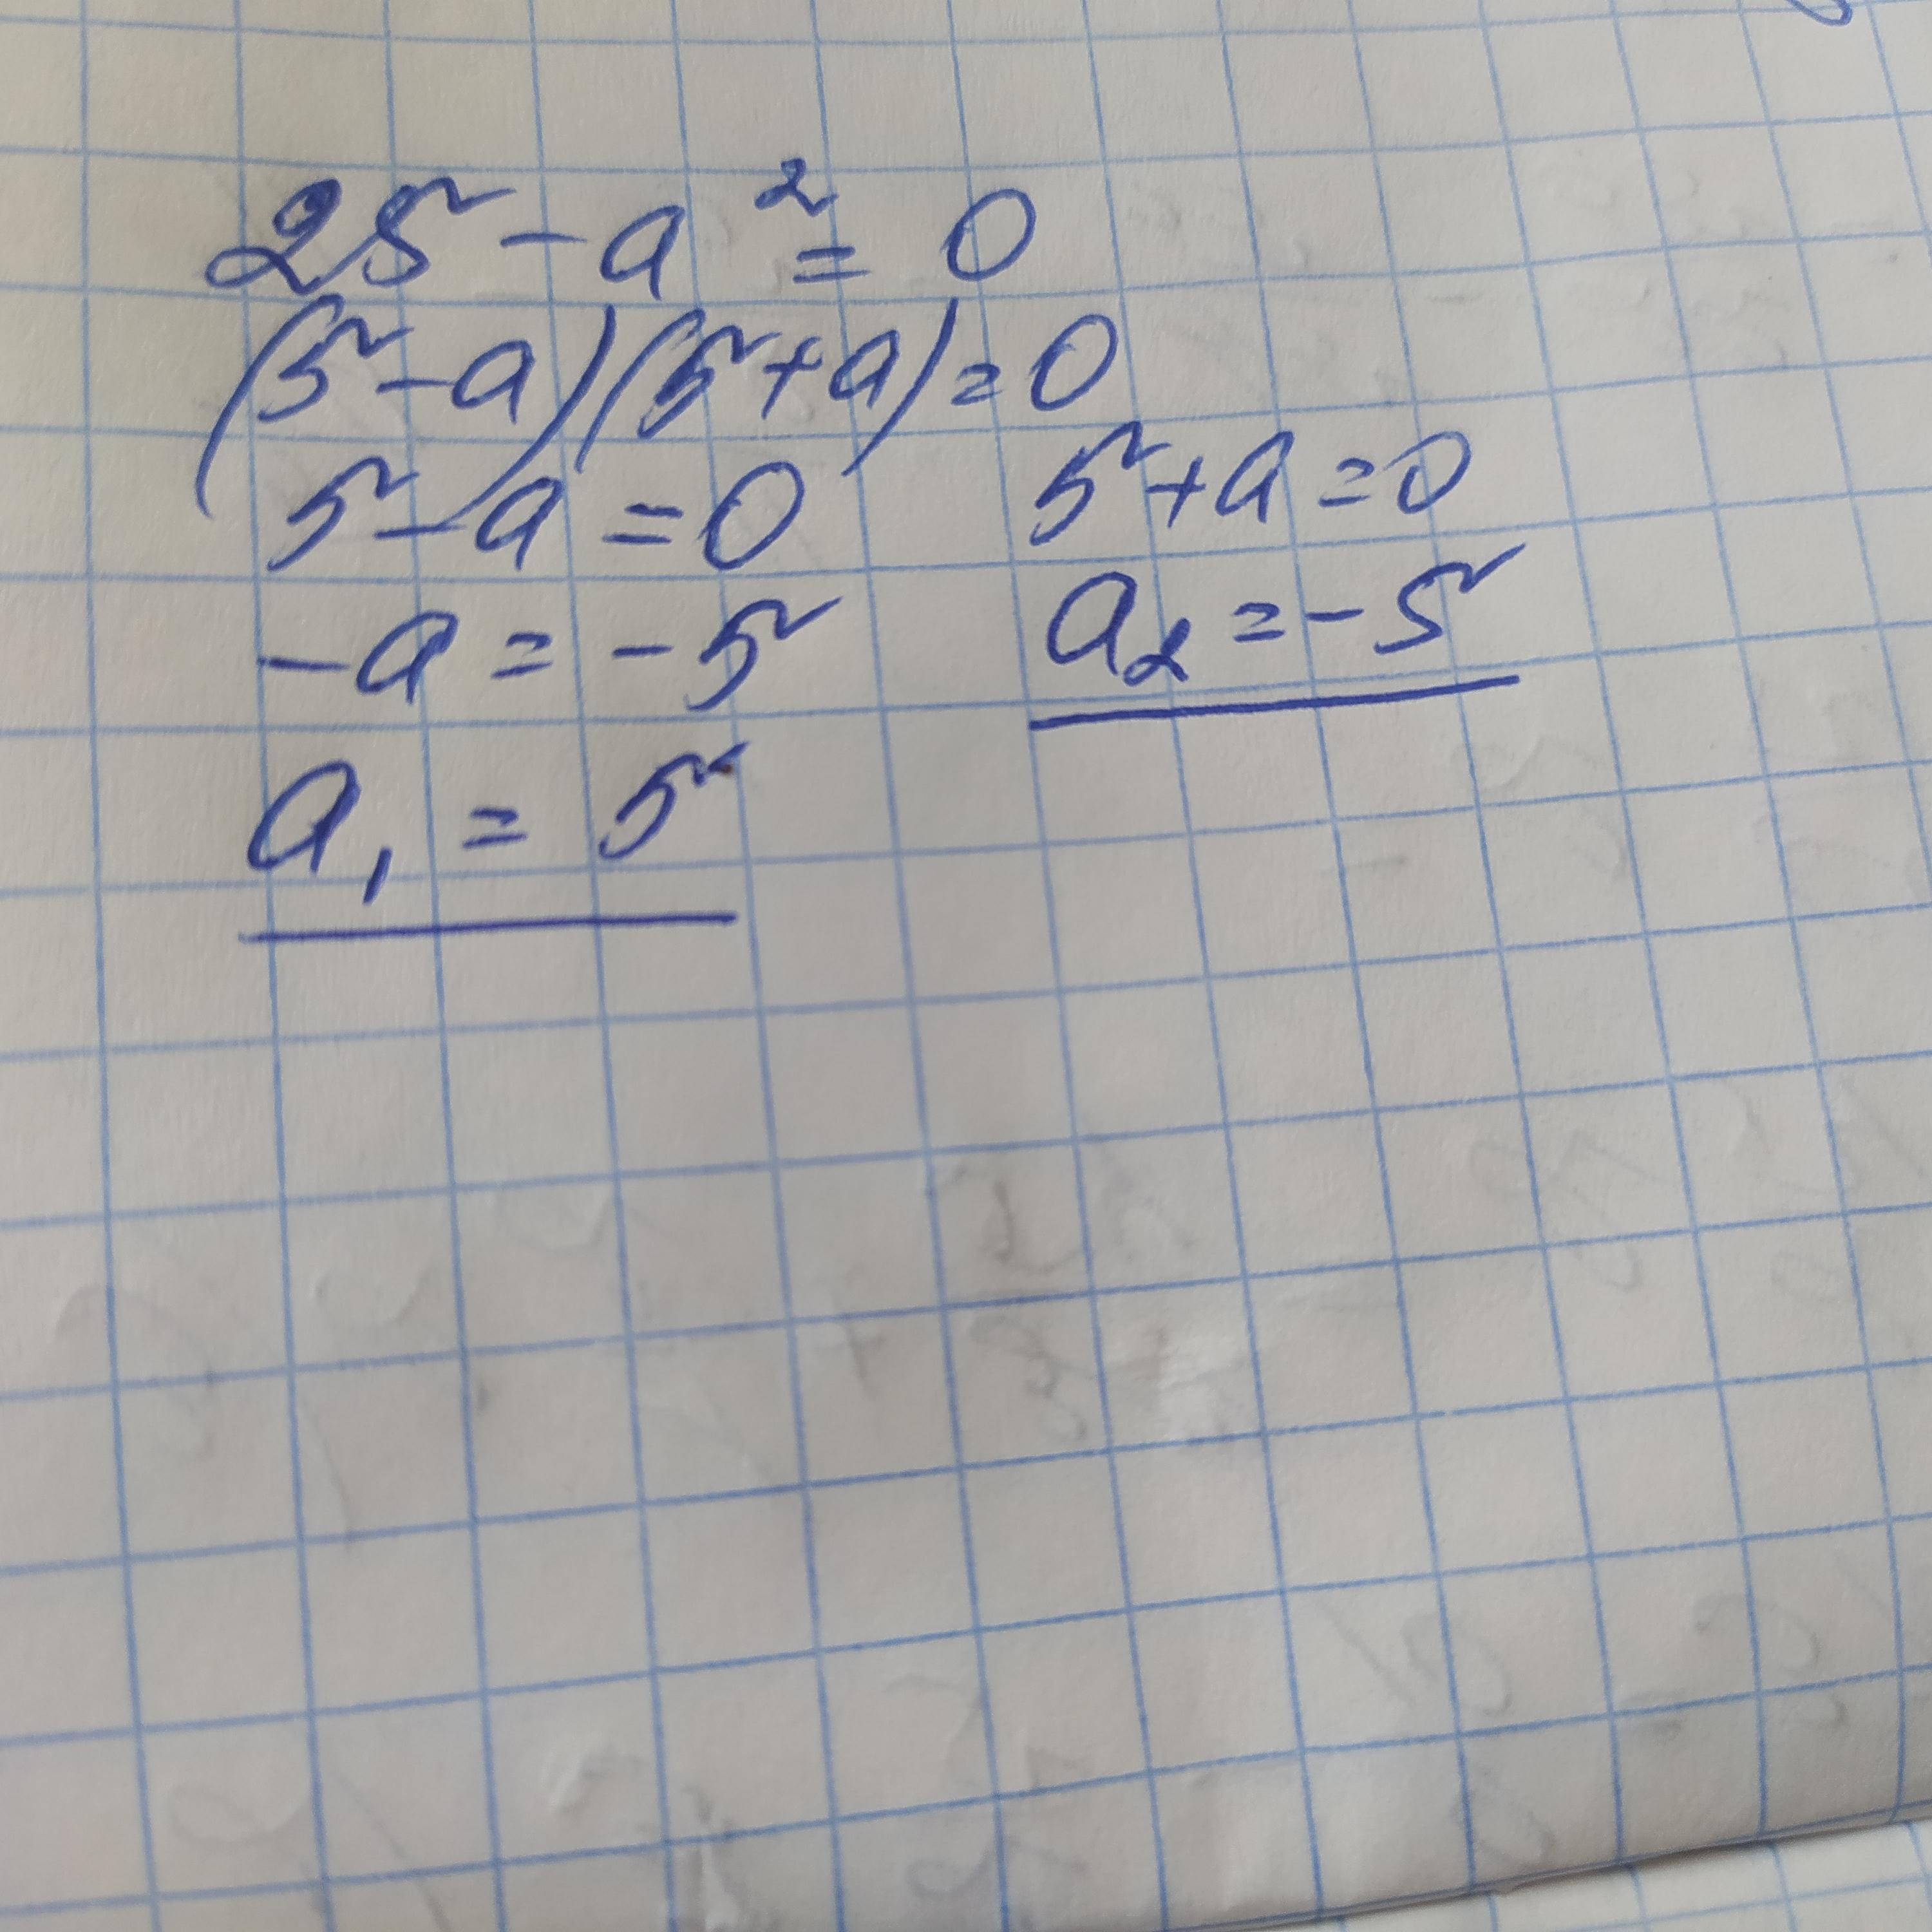 25 - a² = 0
(5 - a)(5 + a) = 0
5 - a = 0
-a = -5
a₁ = 5
5 + a = 0
a₂ = -5